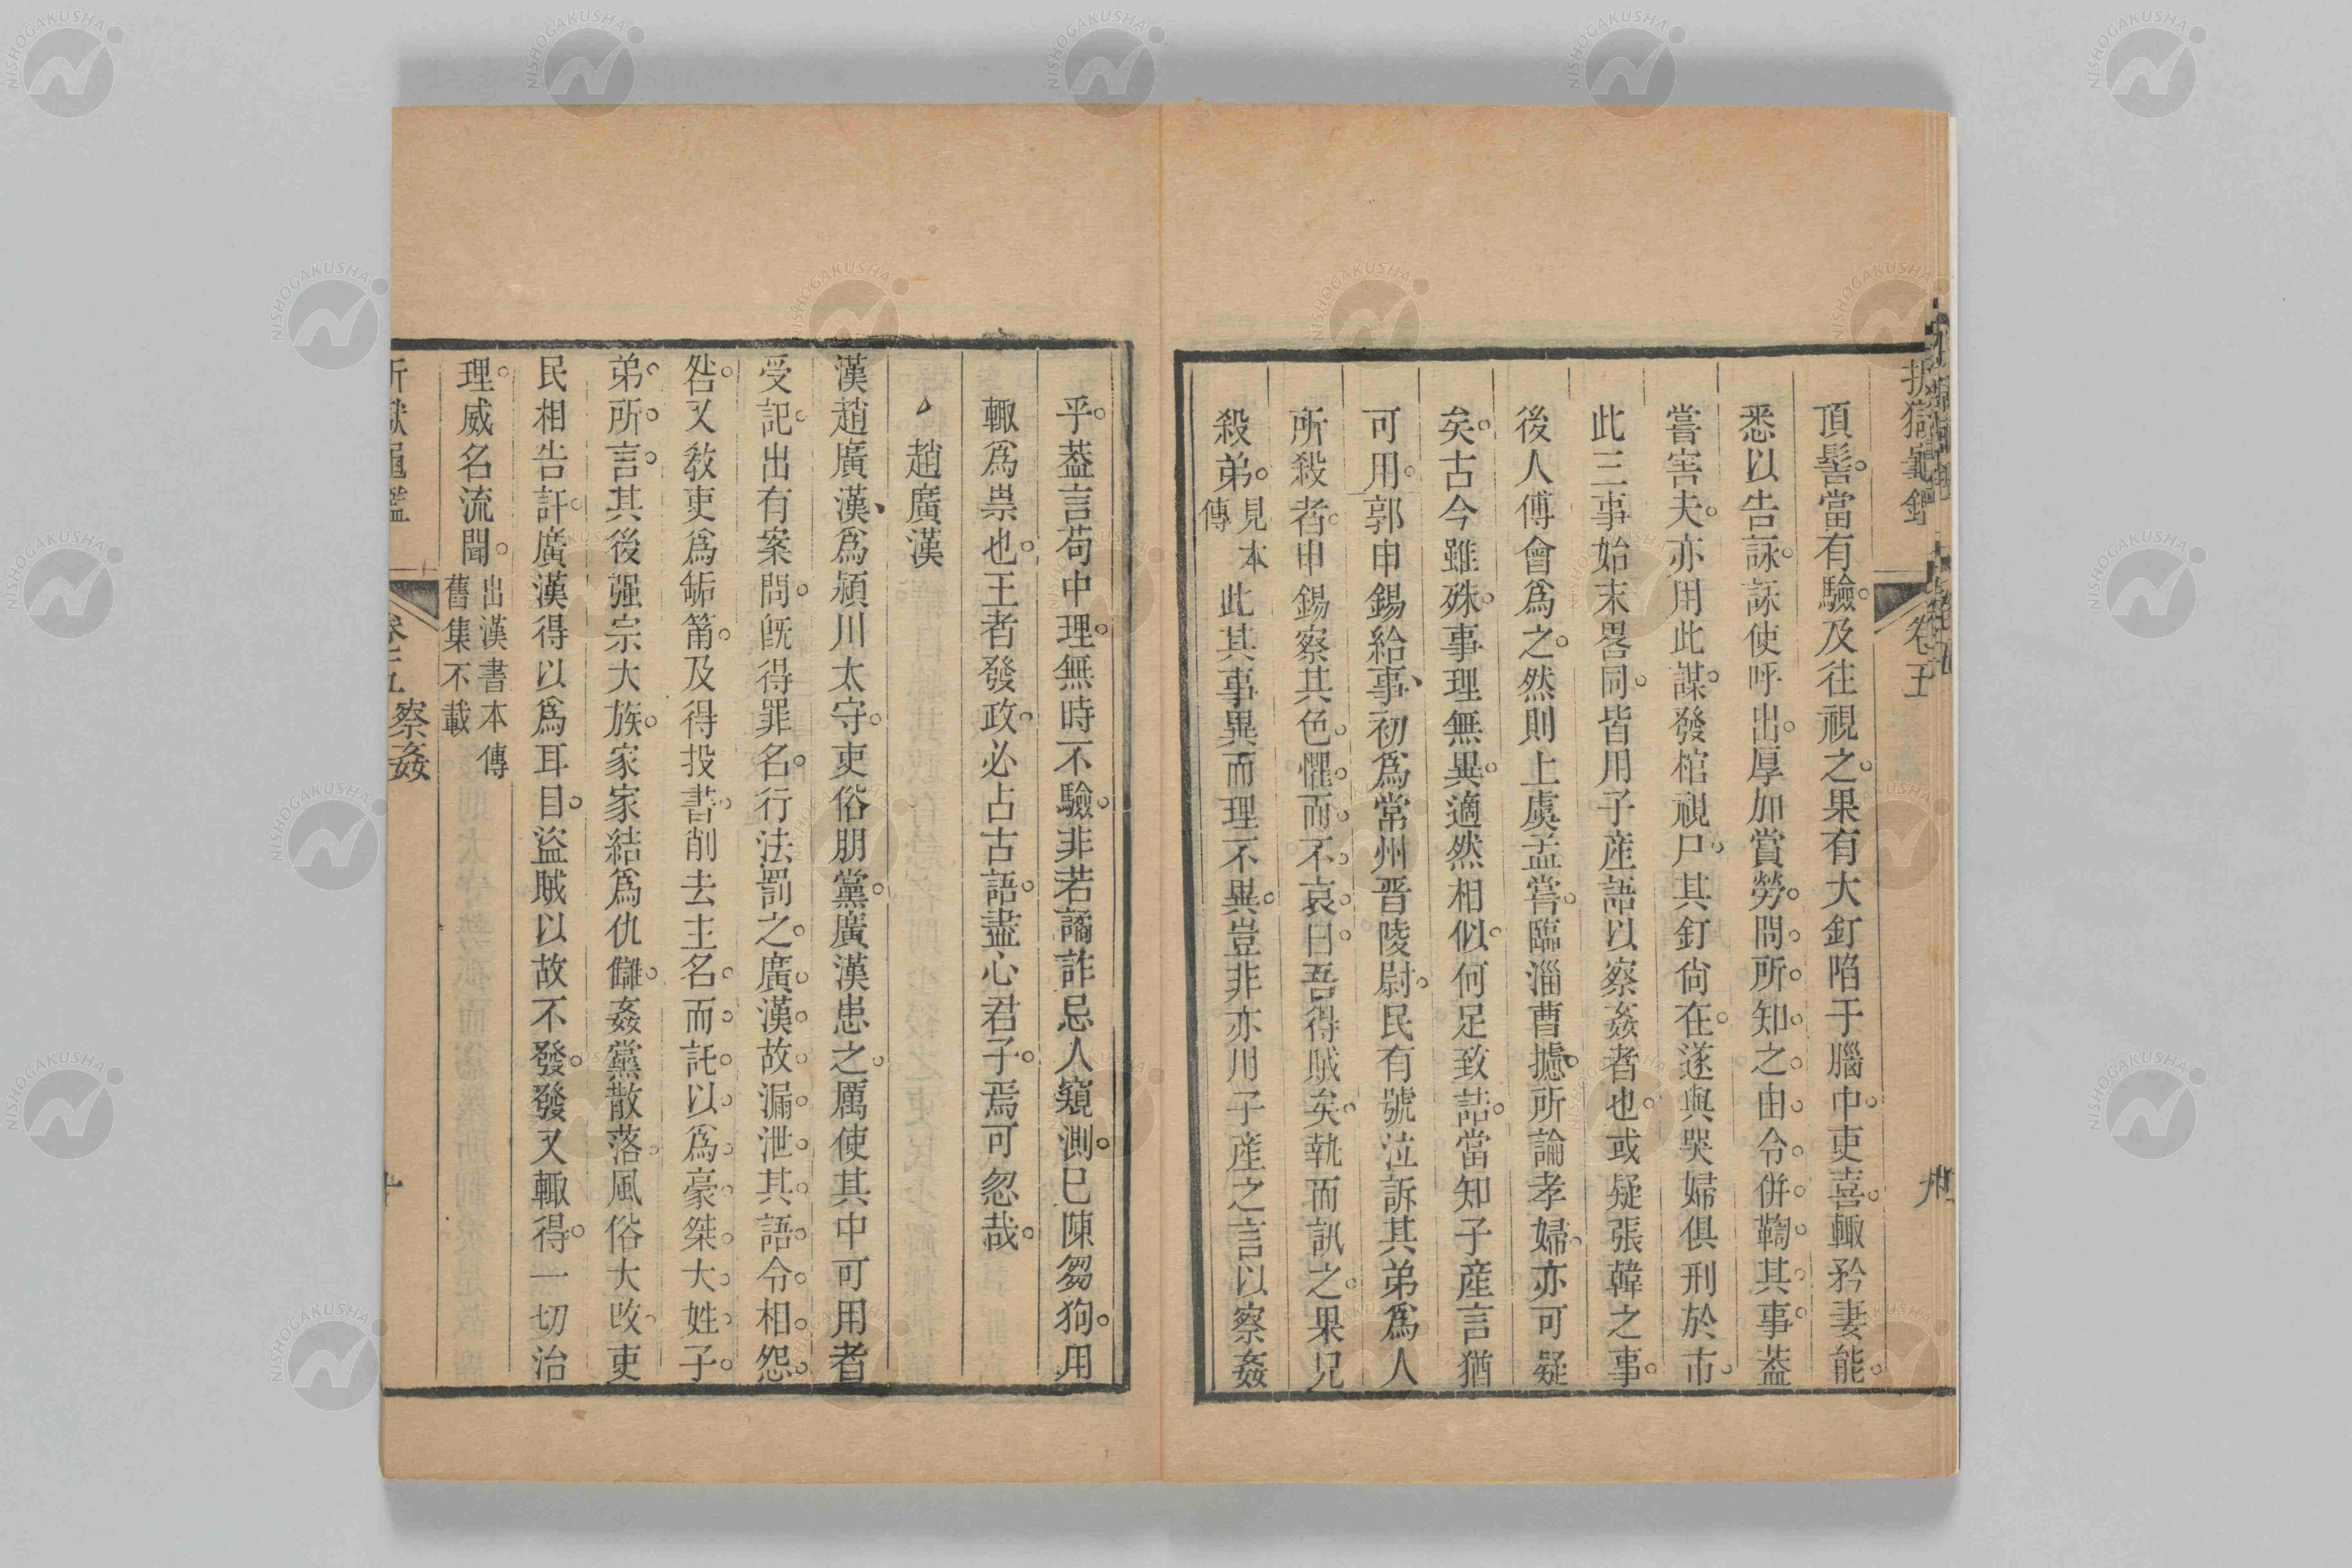 頂髻。當有驗。及往視之。果有大釘陷于腦中。吏喜。輙矜妻能。
悉以告詠。詠使呼出。厚加賞勞。問。所。知。之。由。令。併。鞫。其。事。葢
嘗害夫。亦用此謀。發棺視尸。其釘尙在。遂與哭婦俱刑於市。
此三事始末畧同。皆用子産語以察姦者也。或疑張韓之事。
後人傅會爲之。然則上虞孟嘗。臨淄曹攄。所論孝婦。亦可疑
矣。古今雖殊。事理無異。適然相似。何足致詰。當知子産言猶
可用。郭申錫給事、初爲常州晋陵尉。民有號泣訴其弟爲人
所殺者。申錫察其色。懼。而。不。哀。曰。吾得賊矣。執而訊之。果兄
殺弟。見本傳此其事異而理不異。豈非亦用子産之言以察姦
乎。葢言苟中理。無時不驗。非若譎詐忌人窺測。已陳芻狗。用
輙爲祟也。王者發政。必占古語。盡心君子。焉可忽哉。
趙廣漢
漢趙廣漢、爲潁川太守。吏俗朋黨。廣漢患之。厲使其中可用者
受記。出有案問。旣得罪名。行法罰之。廣。漢。故。漏。泄。其。語。令。相。怨。
咎。又敎吏爲缿筩。及得投書。削去主名。而。託。以。爲。豪。桀。大。姓。子。
弟。所。言。其後强宗大族。家家結爲仇讎。姦黨散落。風俗大改。吏
民相告訐。廣漢得以爲耳目。盜賊以故不發。發又輙得。一切治
理。威名流聞。出漢書本傳舊集不載
卷五
察姦